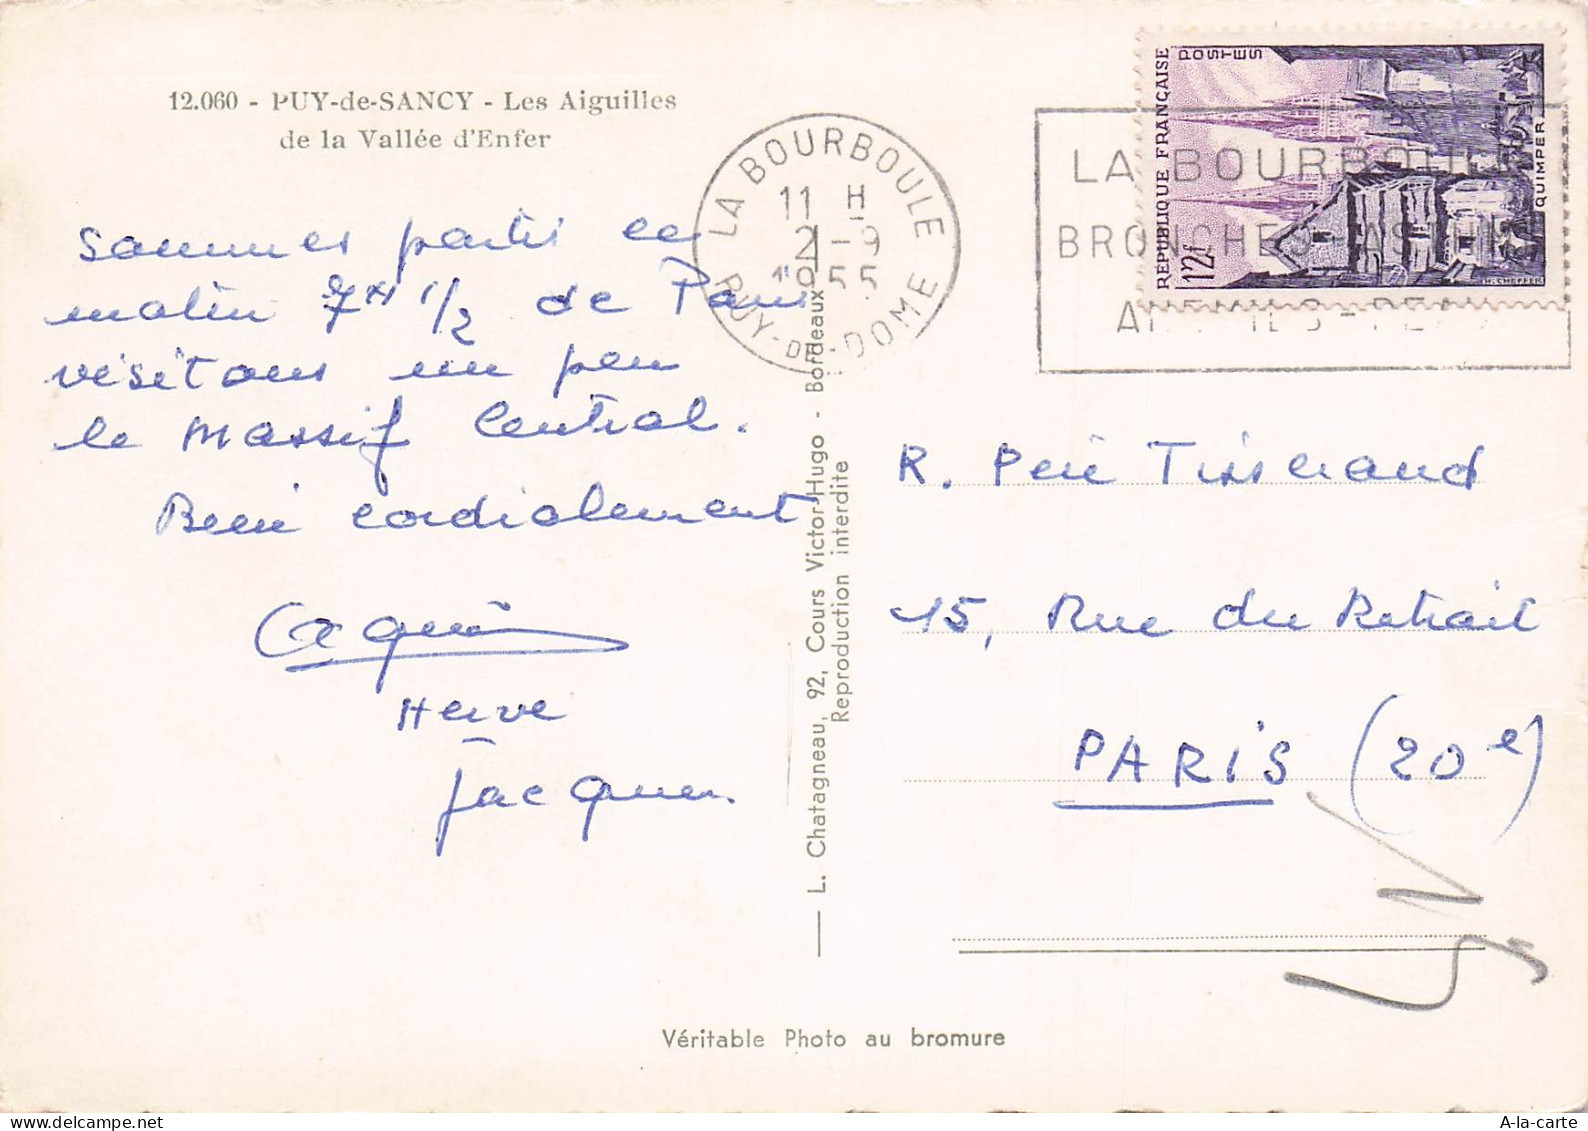 12.060 - PUY-de-SANCY - Les Aiguilles
de la Vallée d'Enfer
Sommes partis ce
matin 7H 1/2 de Paris
visitons un peu
le Massif Central.
Bien cordialement
Herve
Jacques.
LA BOURBOULE
11 H
2-9
1955
PUY-DE-DOME
LA BOURBOULE
BRONCHES-ASTHME
ANEMIES-PEAU
REPUBLIQUE FRANÇAISE
POSTES
12f
QUIMPER
H. CHEFFER
L. Chatagneau, 92, Cours Victor-Hugo - Bordeaux
Reproduction interdite
R. Père Tisserand
15, Rue du Retrait
PARIS (20e)
Véritable Photo au bromure
A-la-carte